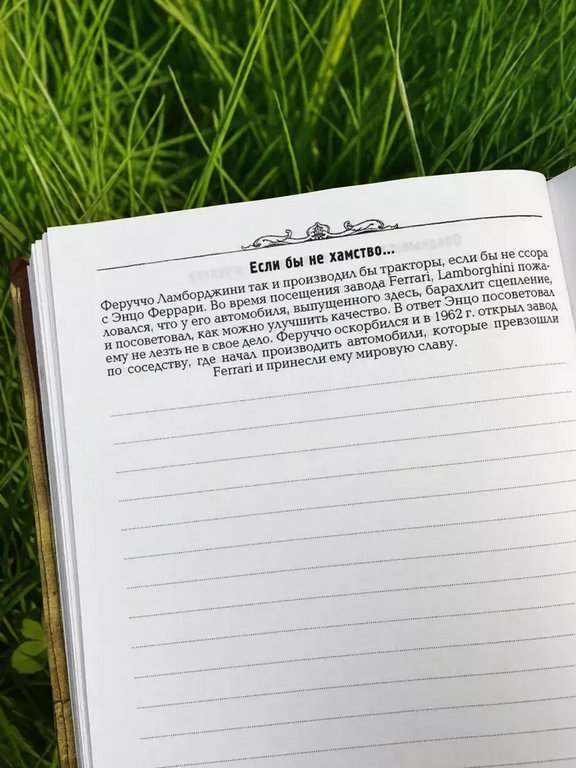 Если бы не хамство...
Феруччо Ламборджини так и производил бы тракторы, если бы не ссора
с Энцо Феррари. Во время посещения завода Ferrari, Lamborghini пожа-
ловался, что у его автомобиля, выпущенного здесь, барахлит сцепление,
и посоветовал, как можно улучшить качество. В ответ Энцо посоветовал
ему не лезть не в свое дело. Феруччо оскорбился и в 1962 г. открыл завод
по соседству, где начал производить автомобили, которые превзошли
Ferrari и принесли ему мировую славу.